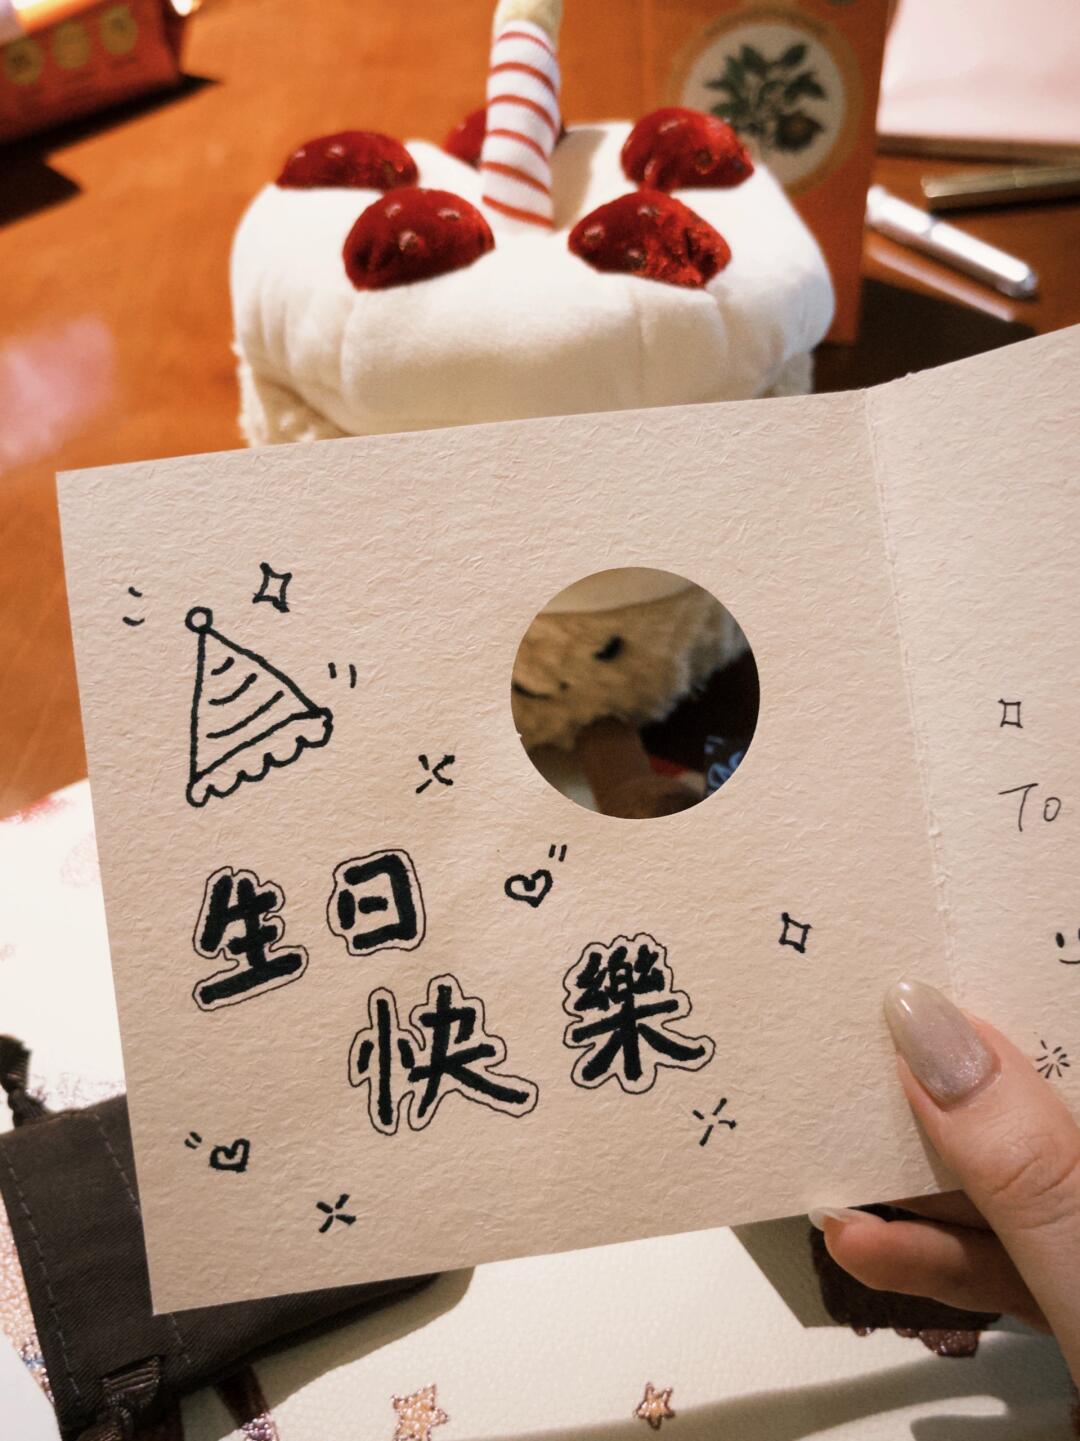 生日
快樂
To